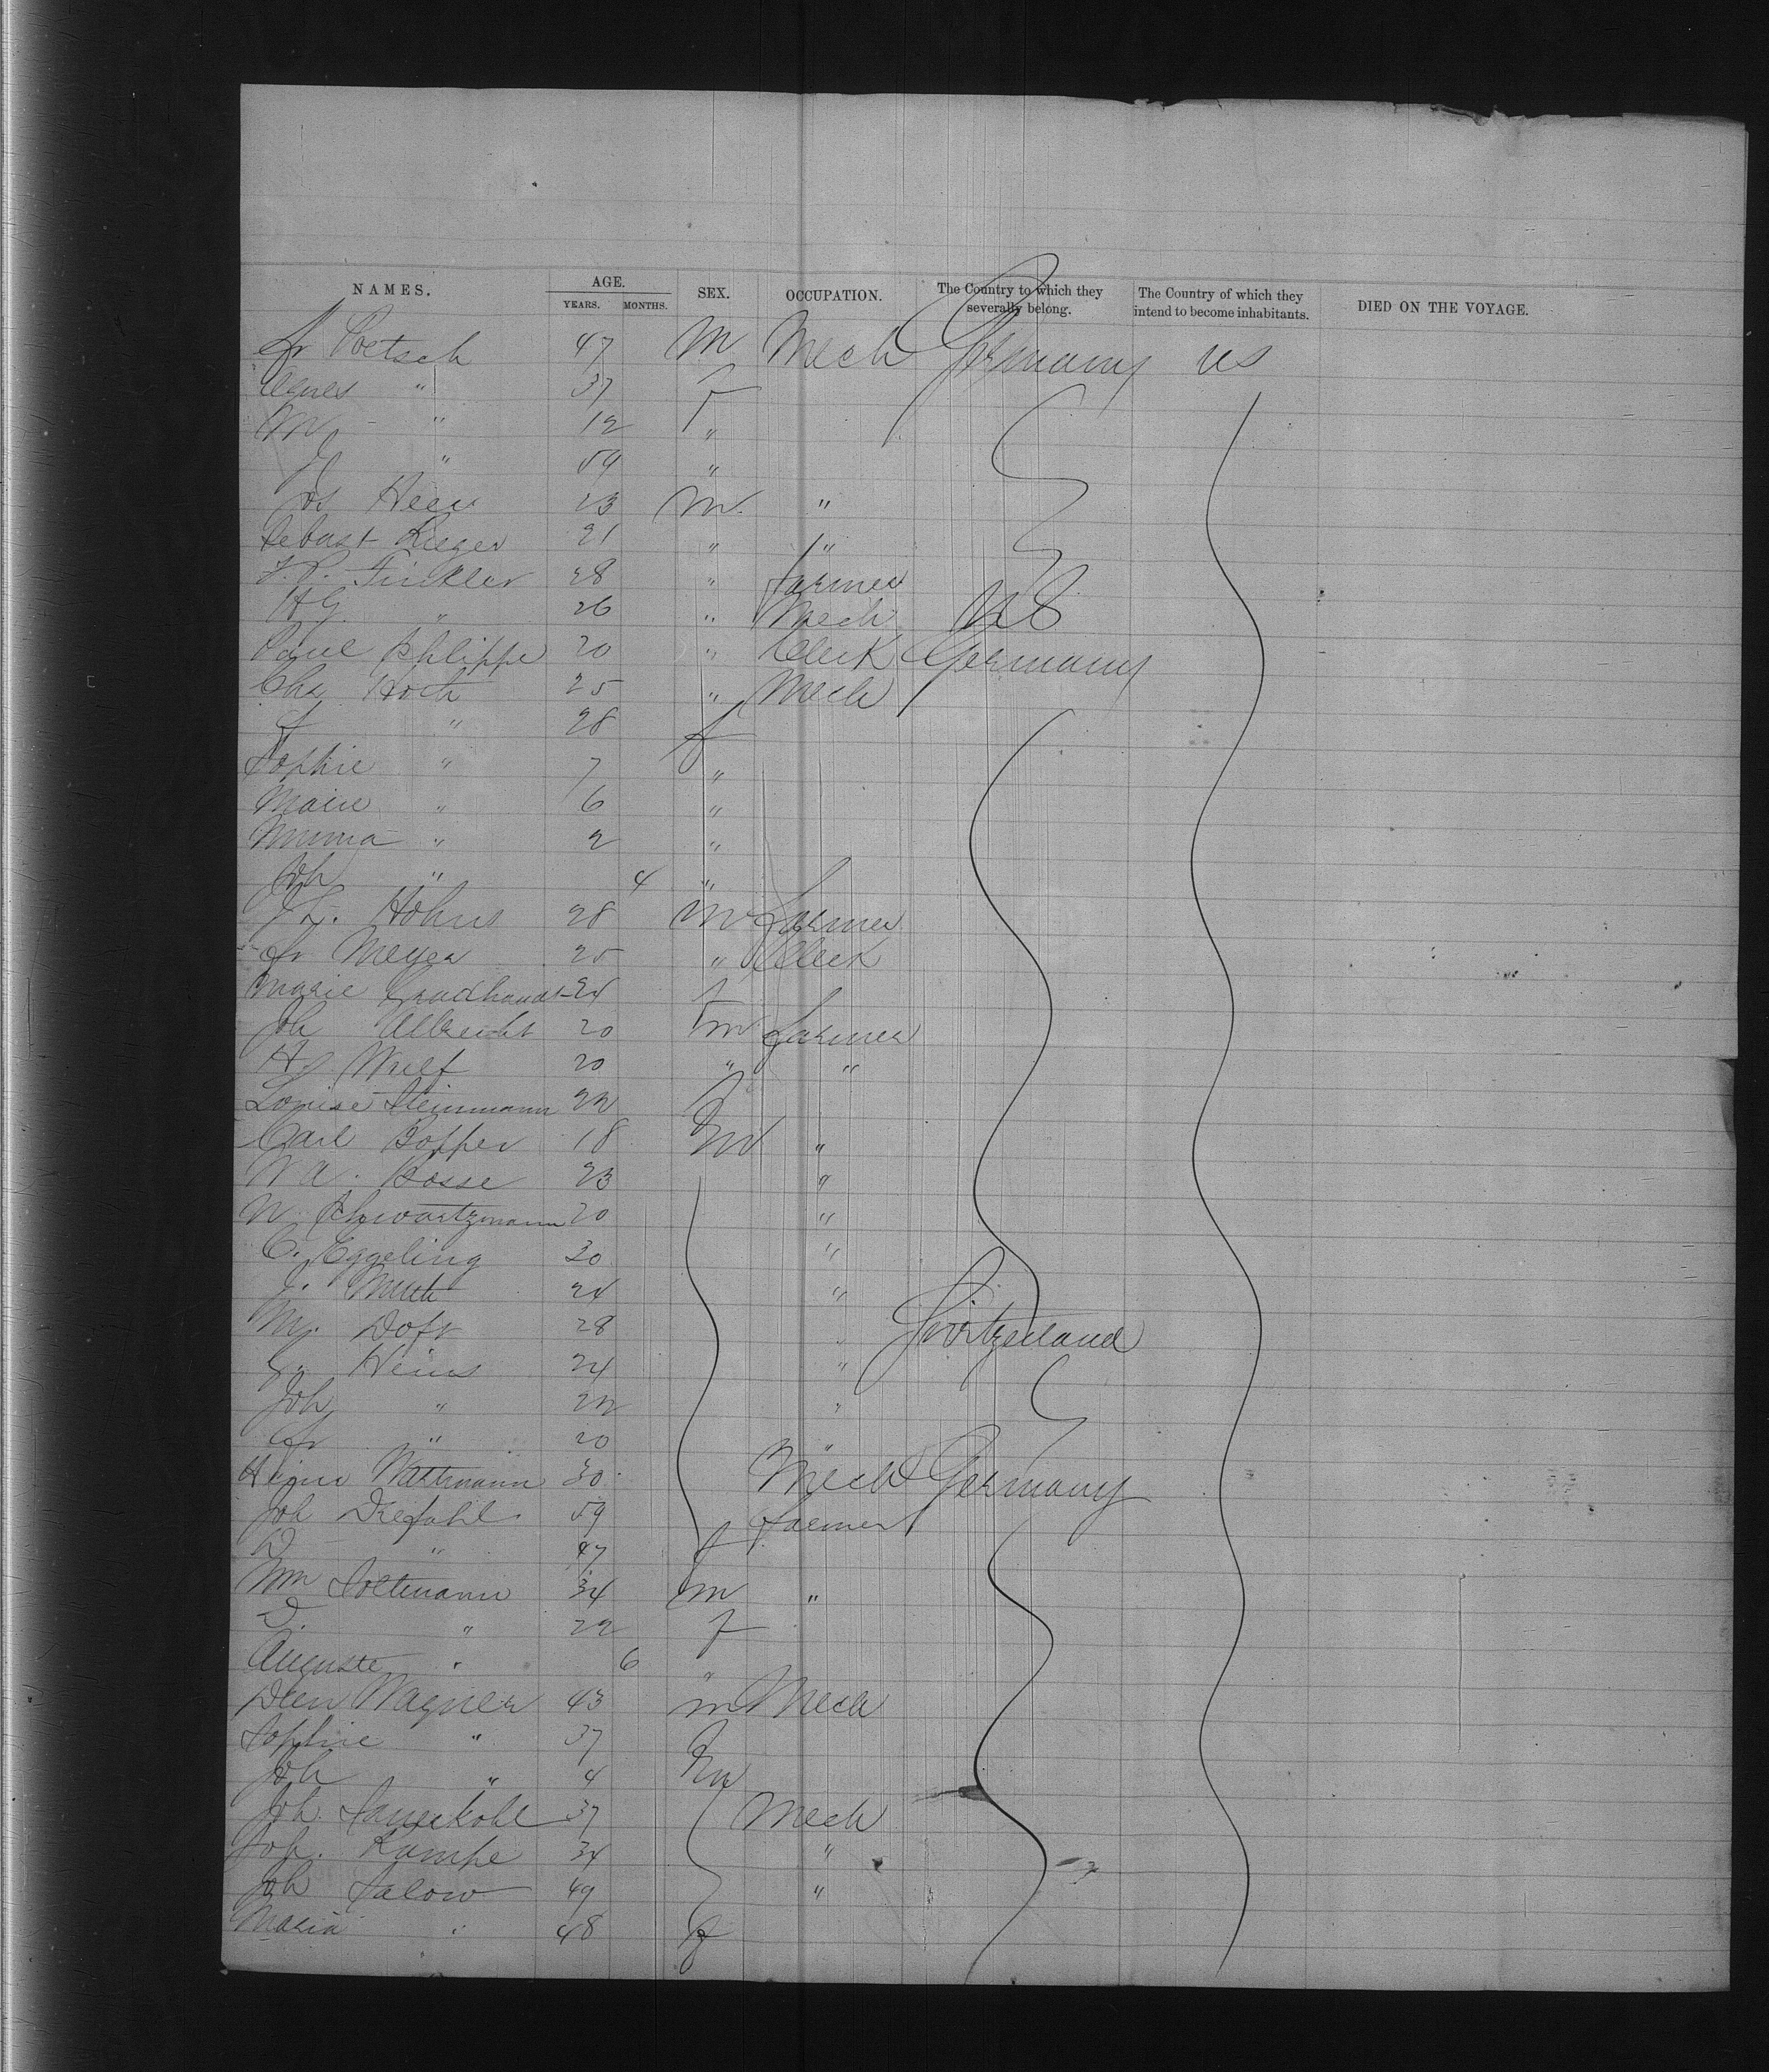 NAMES. AGE. SEX. OCCUPATION. The Country to which they severally belong. The Country of which they intend to become inhabitants. DIED ON THE VOYAGE.
YEARS. MONTHS.
Fr Poetsch 47 M Mech Germany US
Agnes " 37 f
M " 12 "
" 59 "
Jos 23 M. "
Sebast Rieger 21 " "
F. P. Finkler 28 " Farmer
H G. " 26 " Mech US
Paul Philippe 20 " Clerk Germany
Chs Hoch 25 " Mech
" 28 f
Sophie " 7 "
Marie " 6 "
Minna " 2 "
Joh " 4 "
Höhns 28 m Farmer
Fr Meyer 25 " Clerk
Marie Gradhandt 24 f
Joh Albrecht 20 m Farmer
H. Wulf 20 " "
Louise Steinmann 22 f
Carl Bopper 18 m "
Bosse 23 "
W. Schwartzmann 20 "
C. Eggeling 30 "
Muth 24 "
28 " Switzerland
Heins 24 "
Joh " 22 "
Fr " 20 "
Wattmann 30 Mech Germany
Joh Drefahl 59 Farmer
D " 47 f
Wm Soltmann 34 m "
D. " 22 f
Auguste " 6 "
Wagner 43 m Mech
Sophie " 37 f
Joh " 4 m
Joh. Sauerkohl 37 Mech
Jos. Kampe 34 "
Joh Salow 49 "
Maria " 48 f